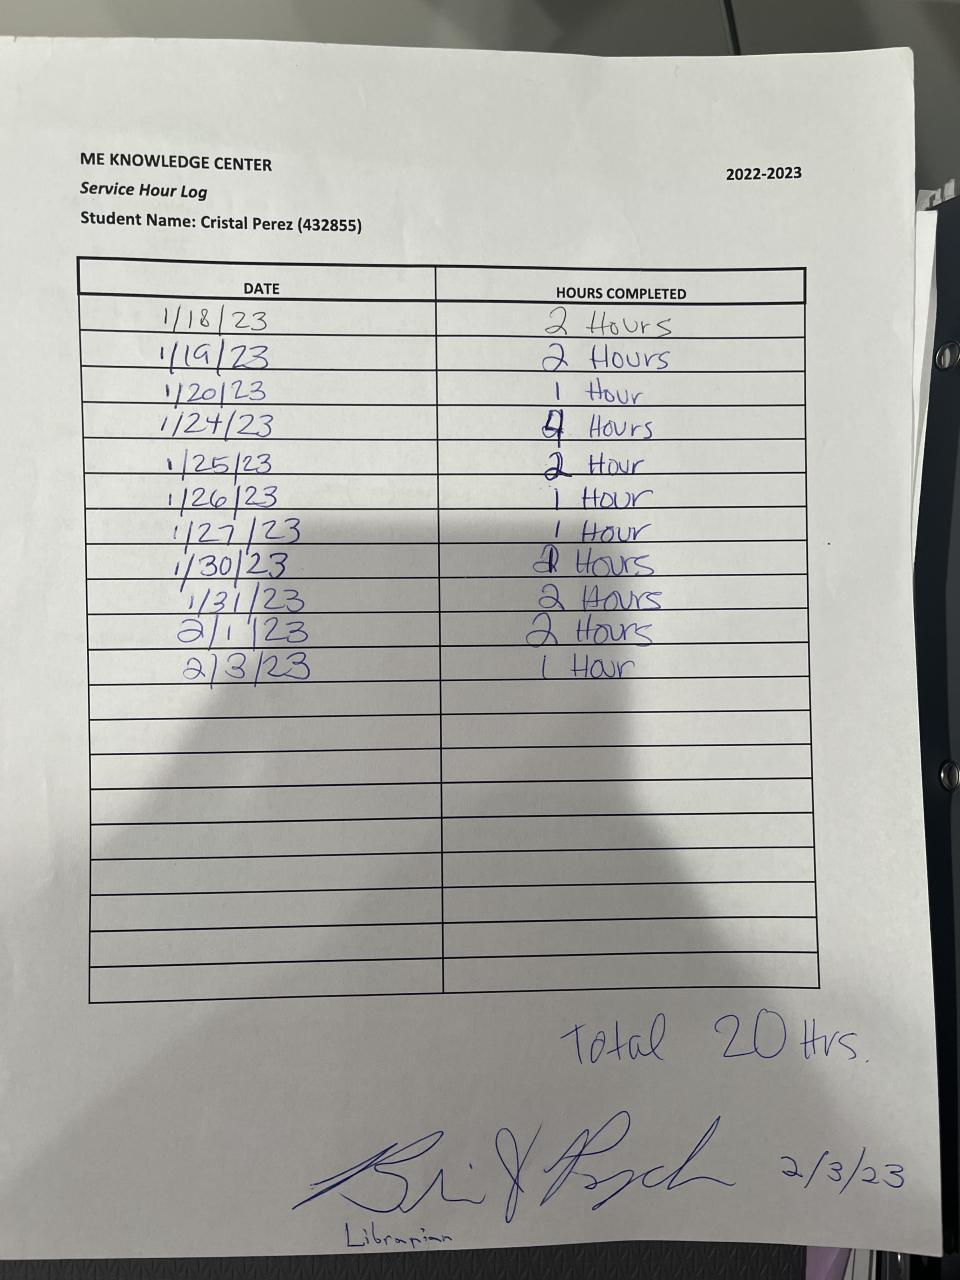 ME KNOWLEDGE CENTER 2022-2023
Service Hour Log
Student Name: Cristal Perez (432855)
DATE HOURS COMPLETED
1/18/23 2 Hours
1/19/23 2 Hours
1/20/23 1 Hour
1/24/23 4 Hours
1/25/23 2 Hour
1/26/23 1 Hour
1/27/23 1 Hour
1/30/23 Hours
1/31/23 2 Hours
2/1/23 2 Hours
2/3/23 1 Hour
Total 20 Hrs.
2/3/23
Librarian